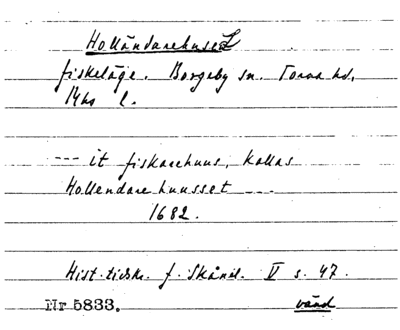 Holländarehuset
fiskeläge. Borgeby sn. Torna hd.
M. l.
--- it fiskarehuus, kallas
Hollendare huusset ---
1682.
Hist. tidskr. f. Skånel. V s. 47.
Nr 5833. vänd